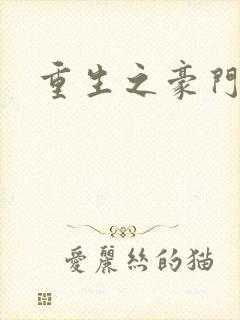 重生之豪門
愛麗絲的猫